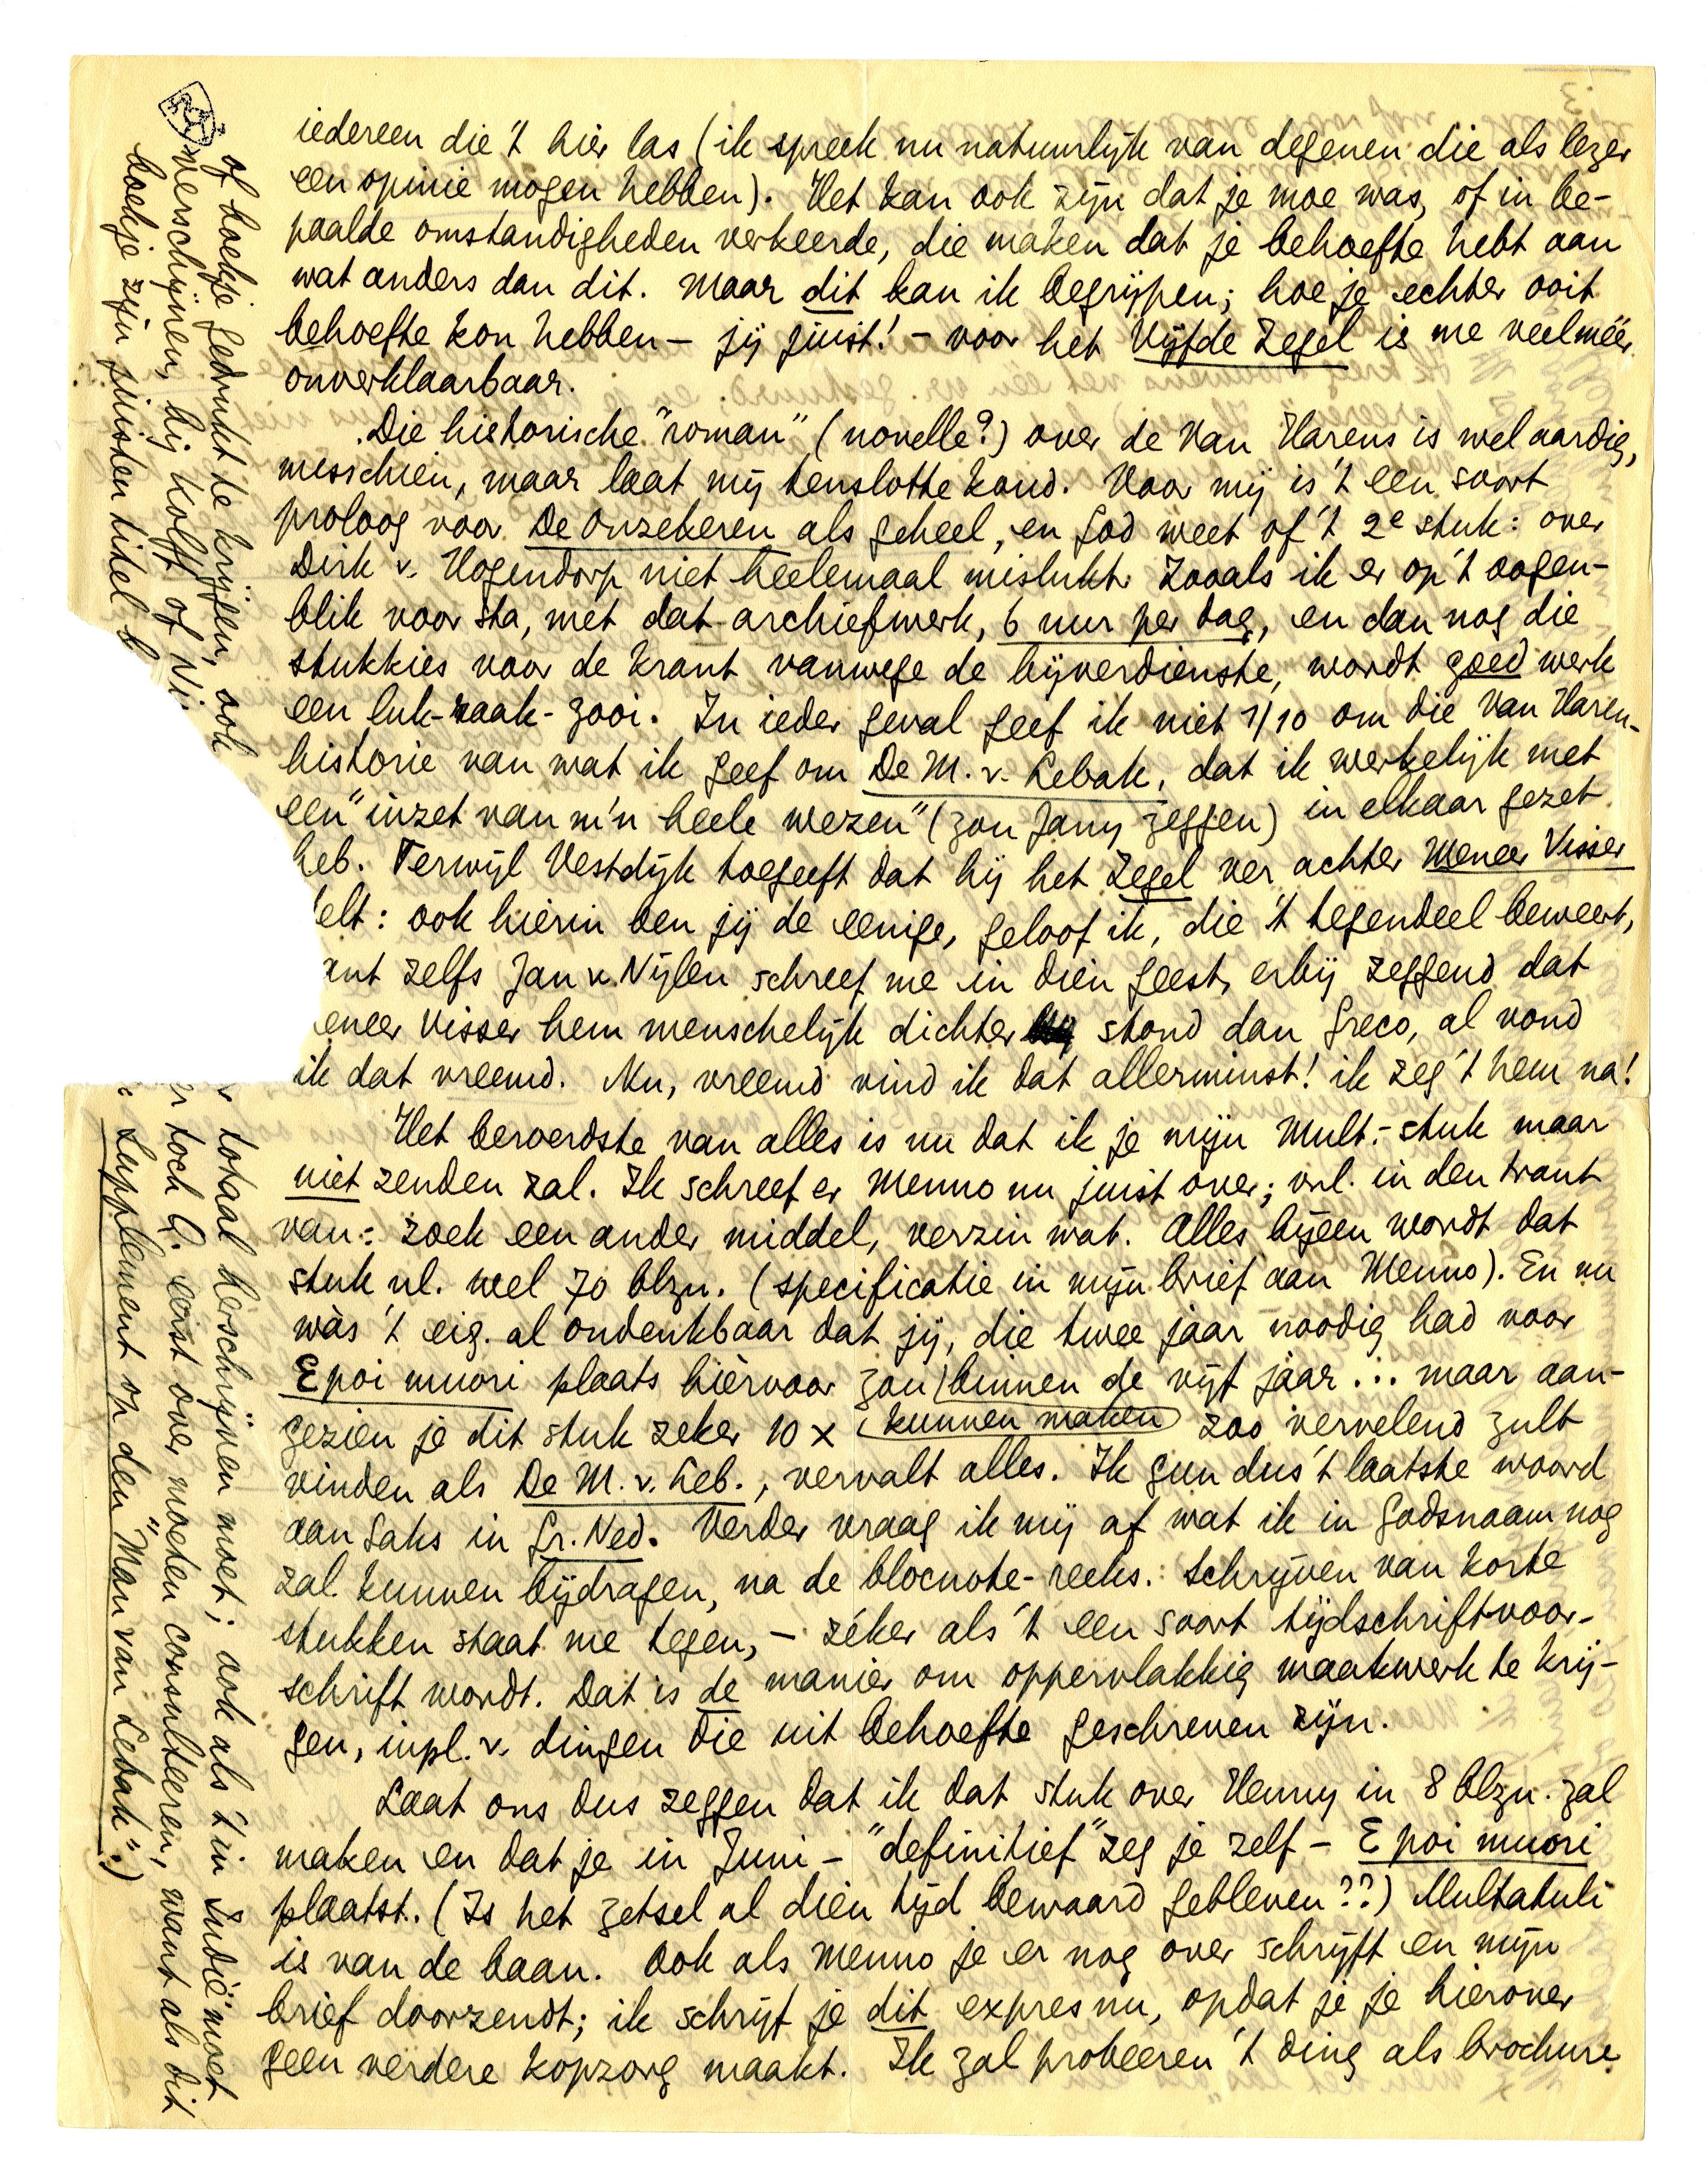 iedereen die 't hier las (ik spreek nu natuurlijk van degenen die als lezer
een opinie mogen hebben). Het kan ook zijn dat je moe was, of in be-
paalde omstandigheden verkeerde, die maken dat je behoefte hebt aan
wat anders dan dit. Maar dit kan ik begrijpen; hoe je echter ooit
behoefte kon hebben – jij juist! – voor het Vijfde Zegel is me veel méér
onverklaarbaar.
Die historische "roman" (novelle?) over de Van Harens is wel aardig,
misschien, maar laat mij tenslotte koud. Voor mij is 't een soort
proloog voor De Onzekeren als geheel, en God weet of 't 2e stuk: over
Dirk v. Hogendorp niet heelemaal mislukt. Zooals ik er op 't oogen-
blik voor sta, met dat archiefwerk, 6 uur per dag, en dan nog die
stukkies voor de krant vanwege de bijverdienste, wordt goed werk
een luk-raak-zooi. In ieder geval geef ik niet 1/10 om die Van Haren-
historie van wat ik geef om De M. v. Lebak, dat ik werkelijk met
een "inzet van m'n heele wezen" (zou Jany zeggen) in elkaar gezet
heb. Terwijl Vestdijk toegeeft dat hij het Zegel ver achter Meneer Visser
elt: ook hierin ben jij de eenige, geloof ik, die 't tegendeel beweert,
ant zelfs Jan v. Nijlen schreef me in dien geest, erbij zeggend dat
eneer Visser hem menschelijk dichter stond dan Greco, al vond
ik dat vreemd. Nu, vreemd vind ik dat allerminst! ik zeg 't hem na!
Het beroerdste van alles is nu dat ik je mijn Mult.-stuk maar
niet zenden zal. Ik schreef er Menno nu juist over; vnl. in den trant
van: zoek een ander middel, verzin wat. Alles bijeen wordt dat
stuk nl. wel 70 blzn. (specificatie in mijn brief aan Menno). En nu
wàs 't eig. al ondenkbaar dat jij, die twee jaar noodig had voor
E poi muori plaats hièrvoor zou binnen de vijf jaar... maar aan-
gezien je dit stuk zeker 10 x kunnen maken zoo vervelend zult
vinden als De M. v. Leb., vervalt alles. Ik gun dus 't laatste woord
aan Saks in Gr. Ned. Verder vraag ik mij af wat ik in godsnaam nog
zal kunnen bijdragen, na de blocnote-reeks. Schrijven van korte
stukken staat me tegen, – zéker als 't een soort tijdschriftvoor-
schrift wordt. Dat is de manier om oppervlakkig maakwerk te krij-
gen, inpl. v. dingen die uit behoefte geschreven zijn.
Laat ons dus zeggen dat ik dat stuk over Henny in 8 blzn. zal
maken en dat je in Juni – "definitief" zeg je zelf – E poi muori
plaatst. (Is het zetsel al dien tijd bewaard gebleven??) Multatuli
is van de baan. Ook als Menno je er nog over schrijft en mijn
brief doorzendt; ik schrijf je dit expres nu, opdat je je hierover
geen verdere kopzorg maakt. Ik zal probeeren 't ding als brochure
of boekje gedrukt te krijgen, ook
totaal herschrijven moet; ook als 't in Indië moet
verschijnen, bij Kolff of Ni
toch G. eerst over moeten consulteeren, want als dit
boekje zijn juisten titel
Supplement op den "Man van Lebak".)